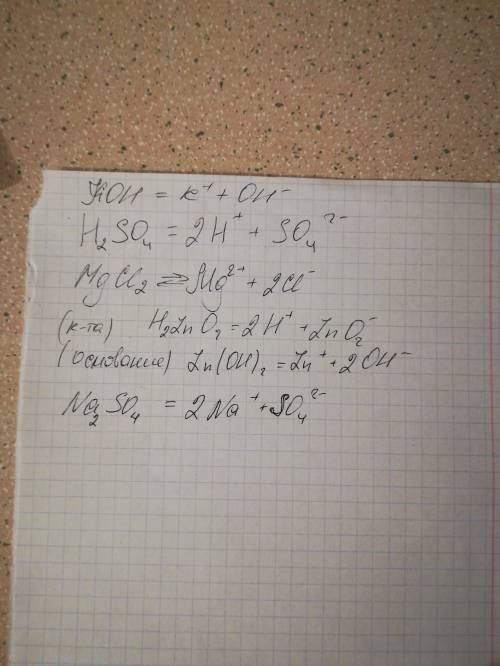 KOH = K⁺ + OH⁻
H₂SO₄ = 2H⁺ + SO₄²⁻
MgCl₂ ⇄ Mg²⁺ + 2Cl⁻
(к-та) H₂ZnO₂ = 2H⁺ + ZnO₂⁻
(основание) Zn(OH)₂ = Zn⁺ + 2OH⁻
Na₂SO₄ = 2Na⁺ + SO₄²⁻